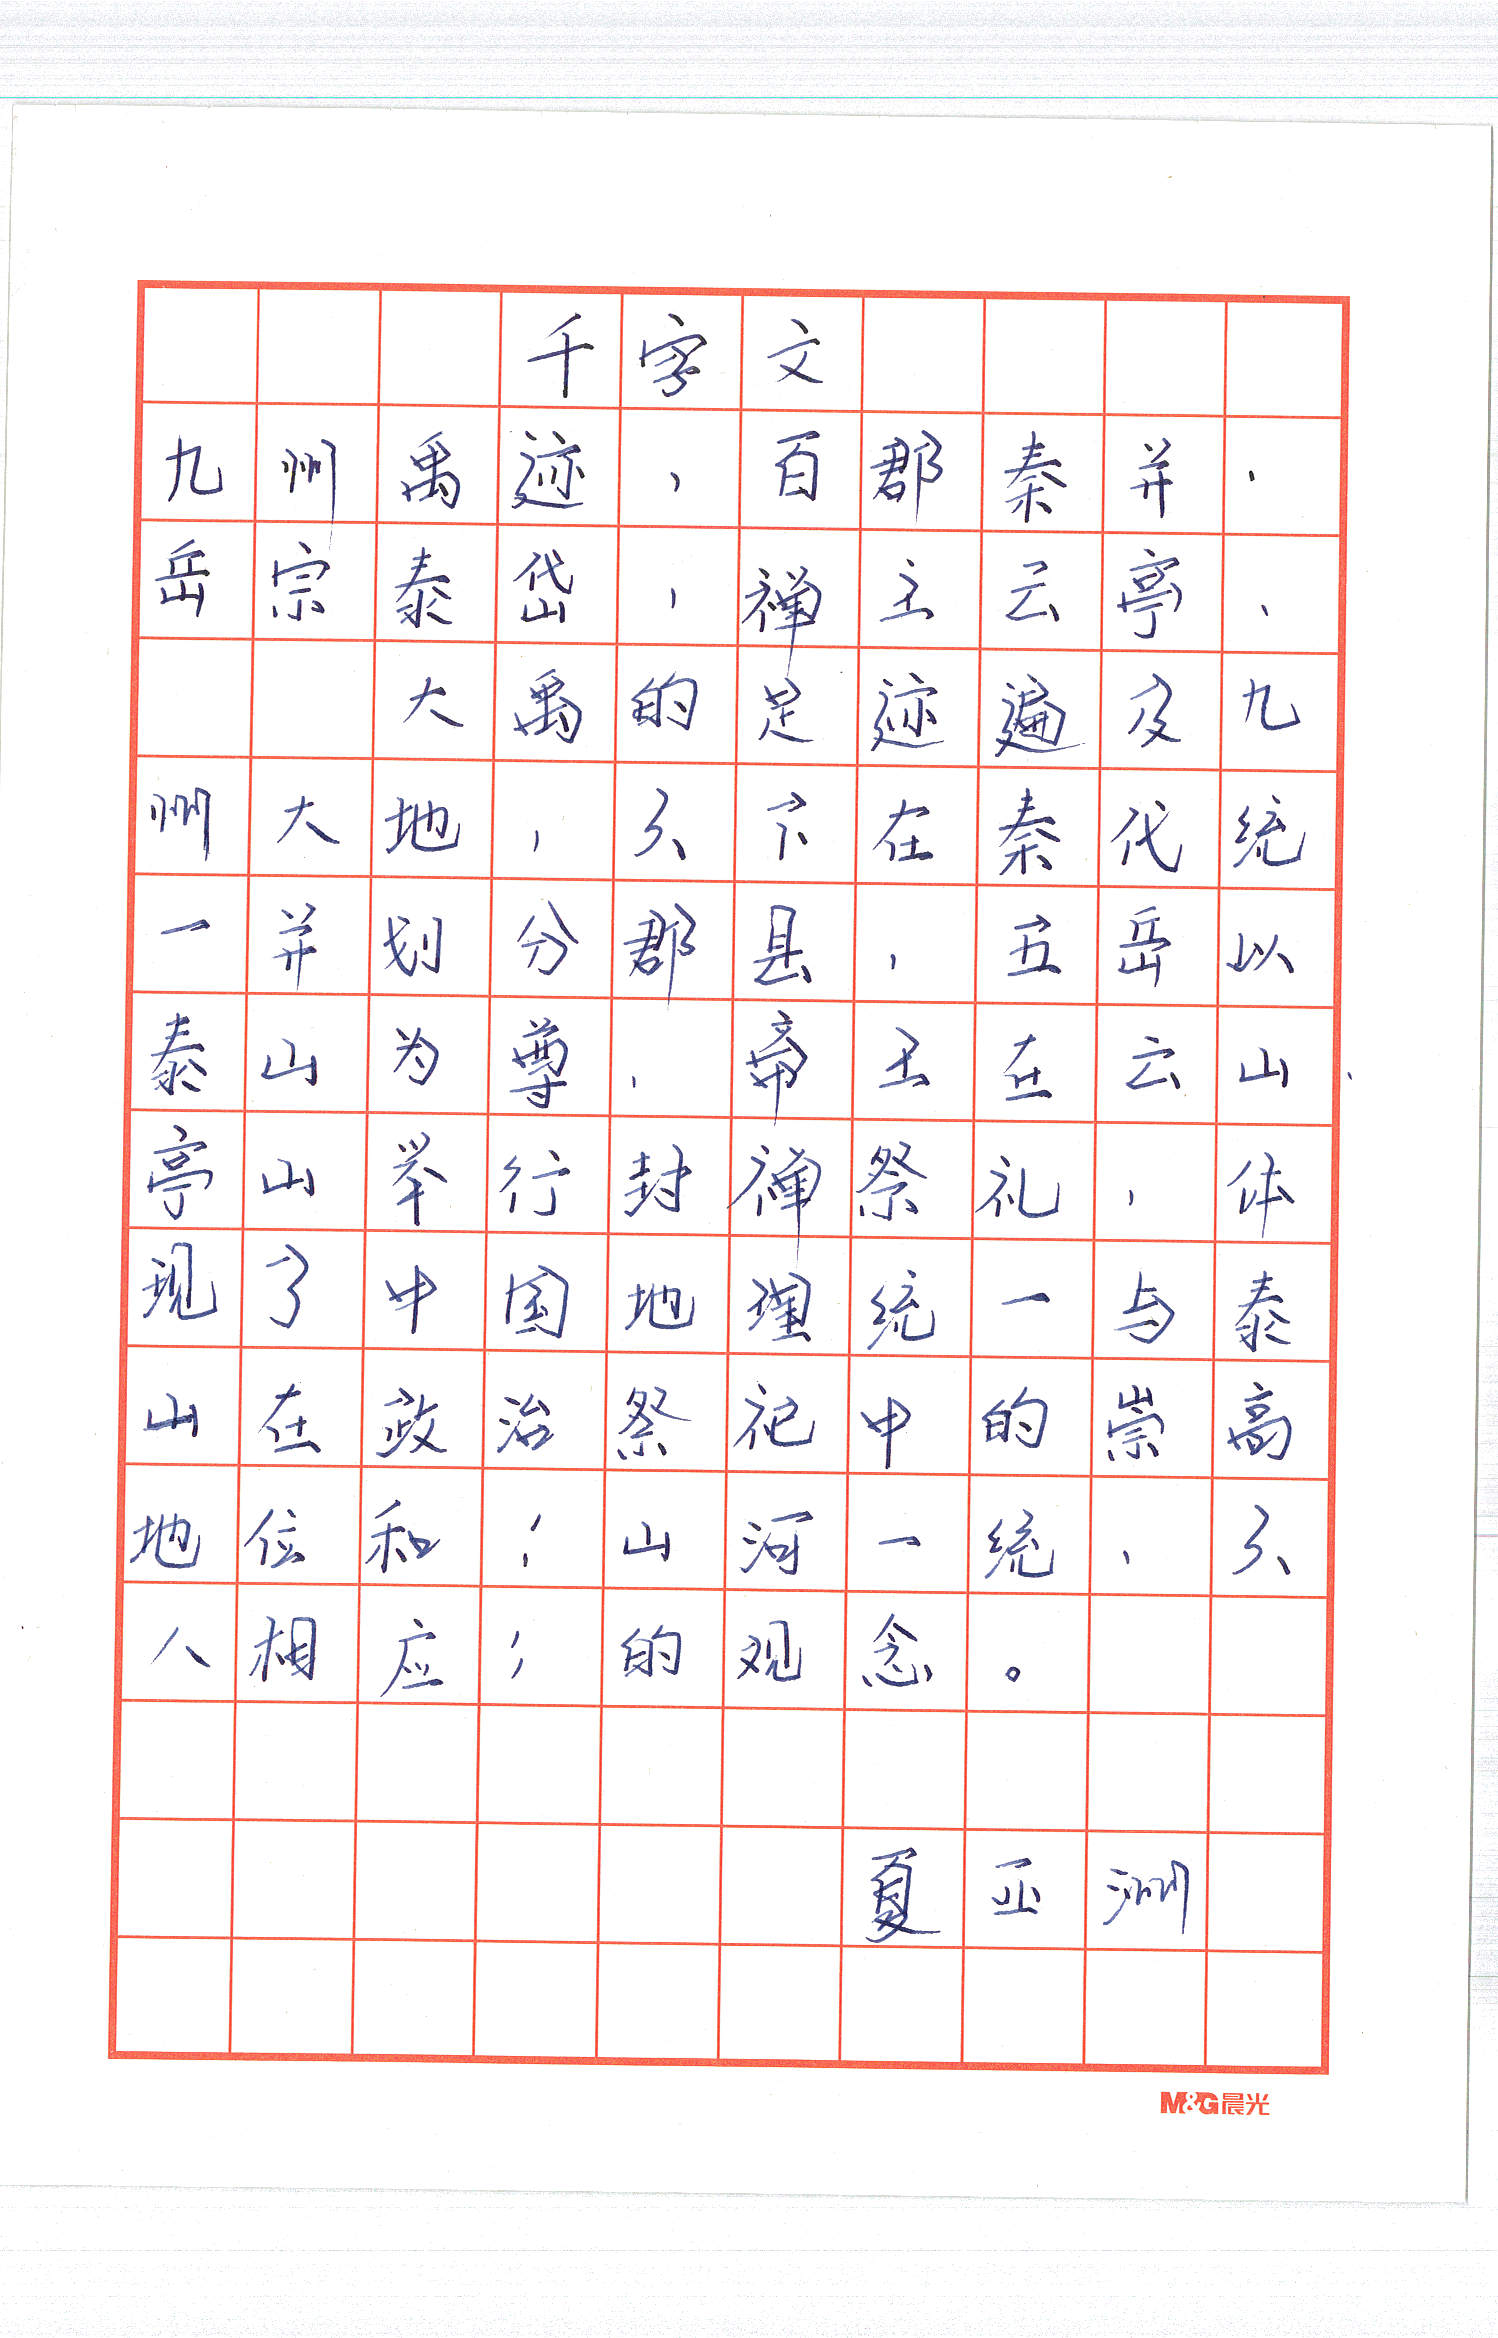 千字文
九州禹迹，百郡秦并，
岳宗泰岱，禅主云亭、
大禹的足迹遍及九
州大地，天下在秦代统
一并划分郡县，五岳以
泰山为尊，帝王在云山、
亭山举行封禅祭礼，体
现了中国地理统一与泰
山在政治祭祀中的崇高
地位和‘山河一统，天
人相应’的观念。
夏亚洲
M&G晨光